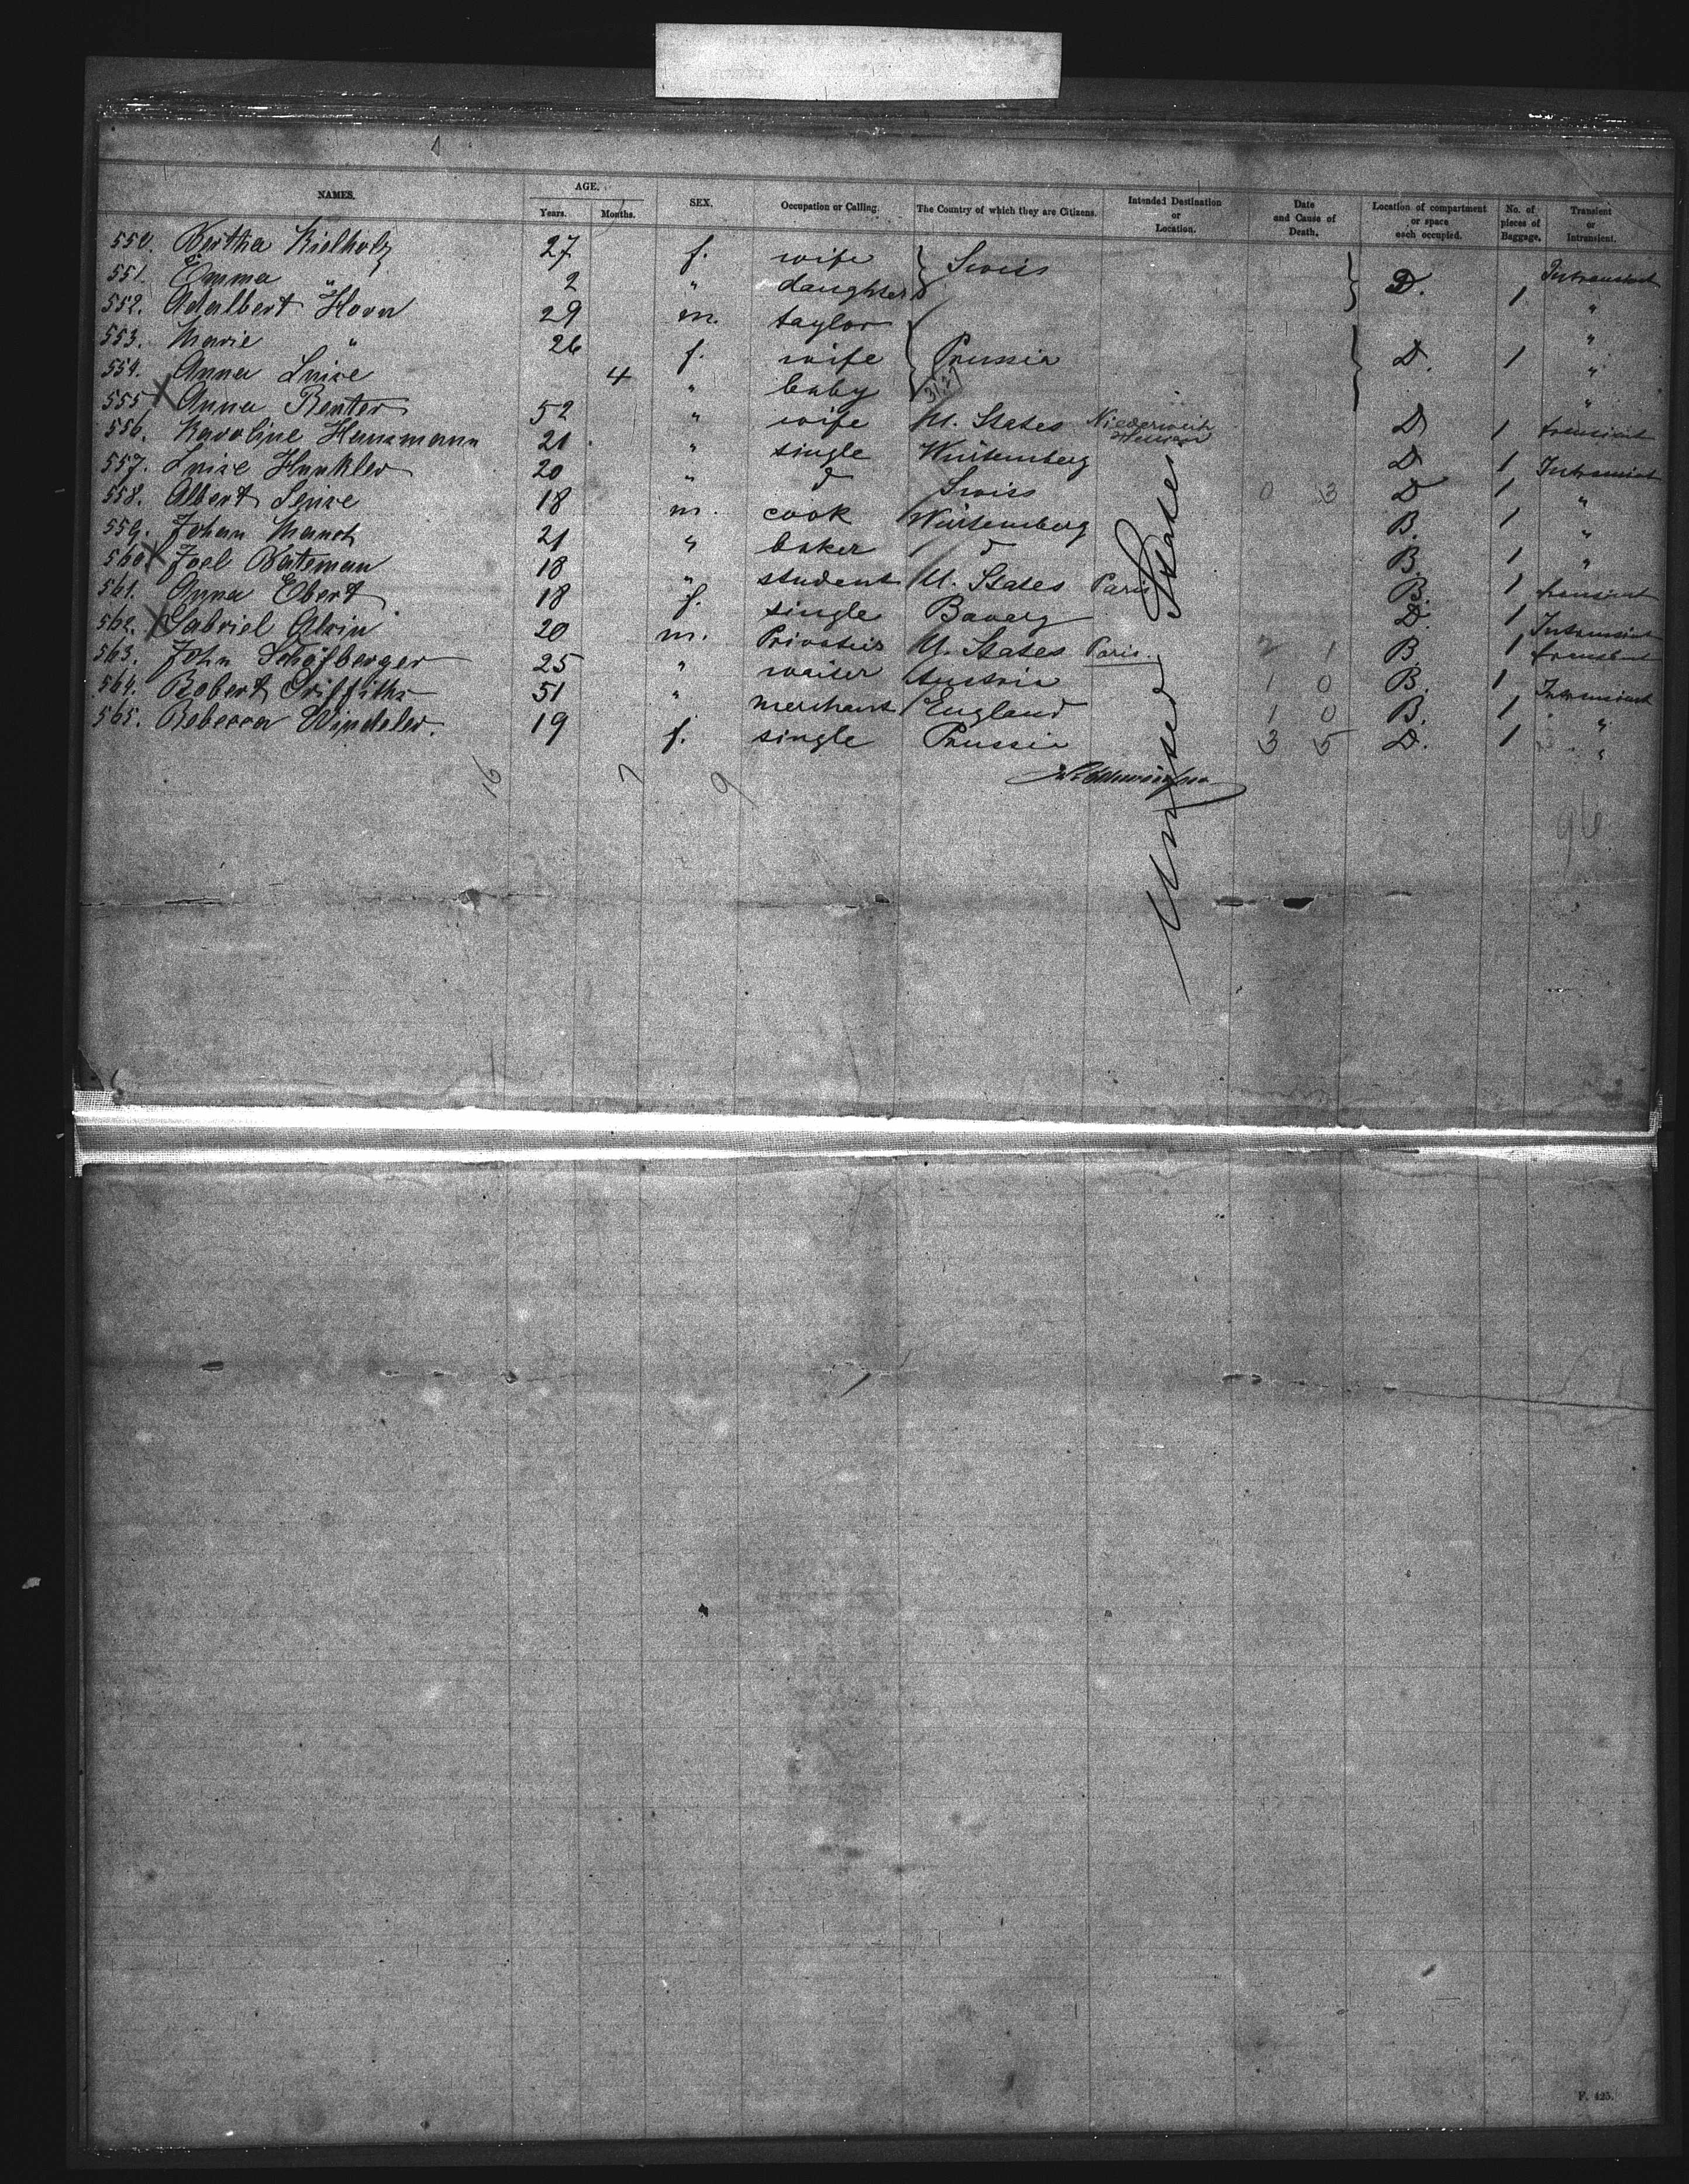 NAMES. AGE. Years. Months. SEX. Occupation or Calling. The Country of which they are Citizens. Intended Destination or Location. Date and Cause of Death. Location of compartment or space each occupied. No. of pieces of Baggage. Transient or Intransient.
550. Bertha Kielholz 27 f. wife } Swiss } D. 1 Intransient
551. Emma " 2 " daughter "
552. Adalbert Horn 29 m. taylor { "
553. Marie " 26 f. wife Prussia } D. 1 "
554. Anna Luise 4 " baby "
555 X Anna Renter 52 " wife U. States D 1 transient
556. Karoline Hansmann 21 " single Würtemberg D 1 Intransient
557. Luise Hunkler 20 " d Swiss 0 3 D 1 "
558. Albert 18 m. cook Würtemberg B. 1 "
559. Johan Mauch 21 " baker d B 1 "
560 X Joel Bateman 18 " student U. States Paris B. 1 transient
561. Anna Ebert 18 f. single Bavery D. 1 Intransient
562. X Gabriel Alvin 20 m. U. States Paris. 2 1 B 1 transient
563. John Schöfberger 25 " waiter Austria 1 0 B. 1 Intransient
564. Robert Griffiths 51 " merchant England 1 0 B. 1 "
565. Rebecca Windeler. 19 f. single Prussia 3 5 D. 1 "
United States
16 7 9
96
F. 425.